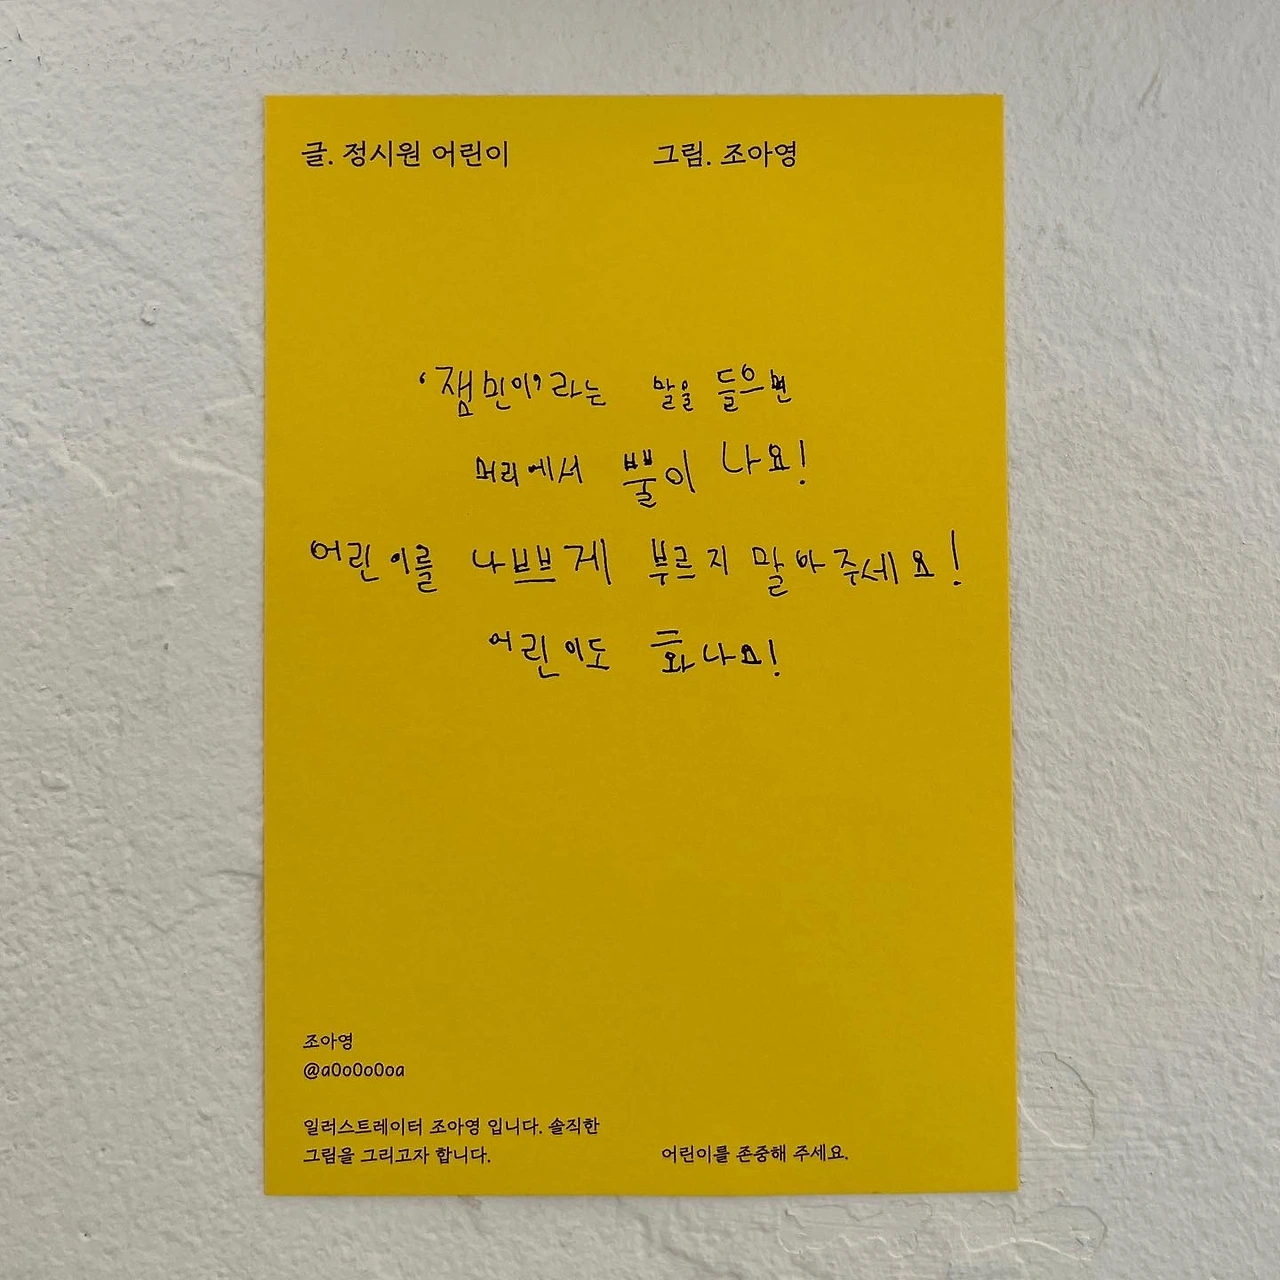 글. 정시원 어린이
그림. 조아영
‘잼민이’라는 말을 들으면
머리에서 뿔이 나요!
어린이를 나쁘게 부르지 말아주세요!
어린이도 화나요!
조아영
@a0o0o0oa
일러스트레이터 조아영 입니다. 솔직한
그림을 그리고자 합니다.
어린이를 존중해 주세요.